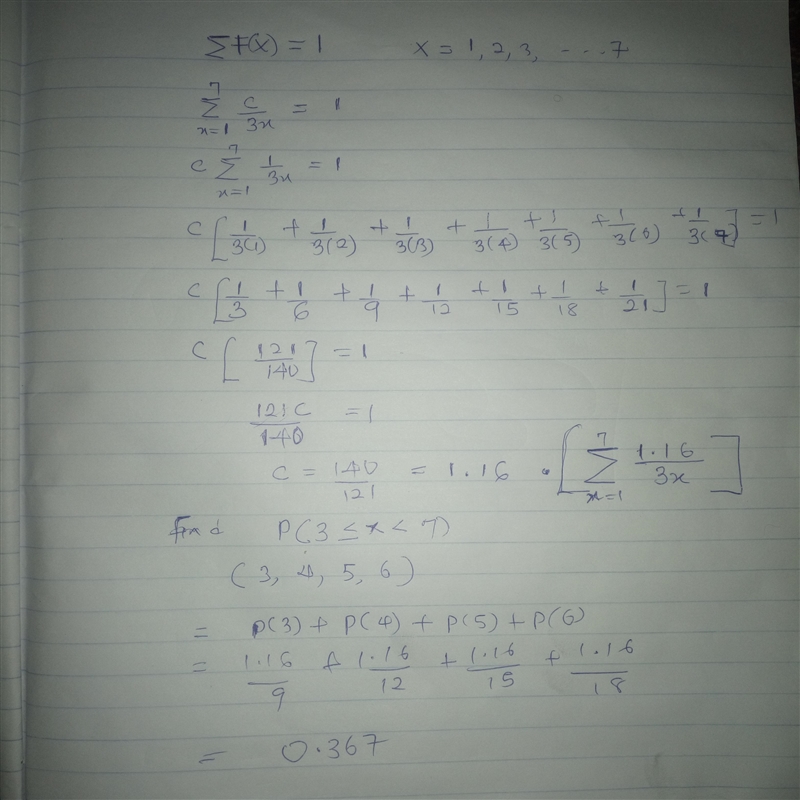 Σf(x) = 1 x = 1, 2, 3, ....7
7 Σ x=1 c/3x = 1
c 7 Σ x=1 1/3x = 1
c[1/3(1) + 1/3(2) + 1/3(3) + 1/3(4) + 1/3(5) + 1/3(6) + 1/3(7)] = 1
c[1/3 + 1/6 + 1/9 + 1/12 + 1/15 + 1/18 + 1/21] = 1
c[121/140] = 1
121c/140 = 1
c = 140/121 = 1.16 . [7 Σ x=1 1.16/3x]
find P(3 ≤ x < 7)
(3, 4, 5, 6)
= P(3) + P(4) + P(5) + P(6)
= 1.16/9 + 1.16/12 + 1.16/15 + 1.16/18
= 0.367